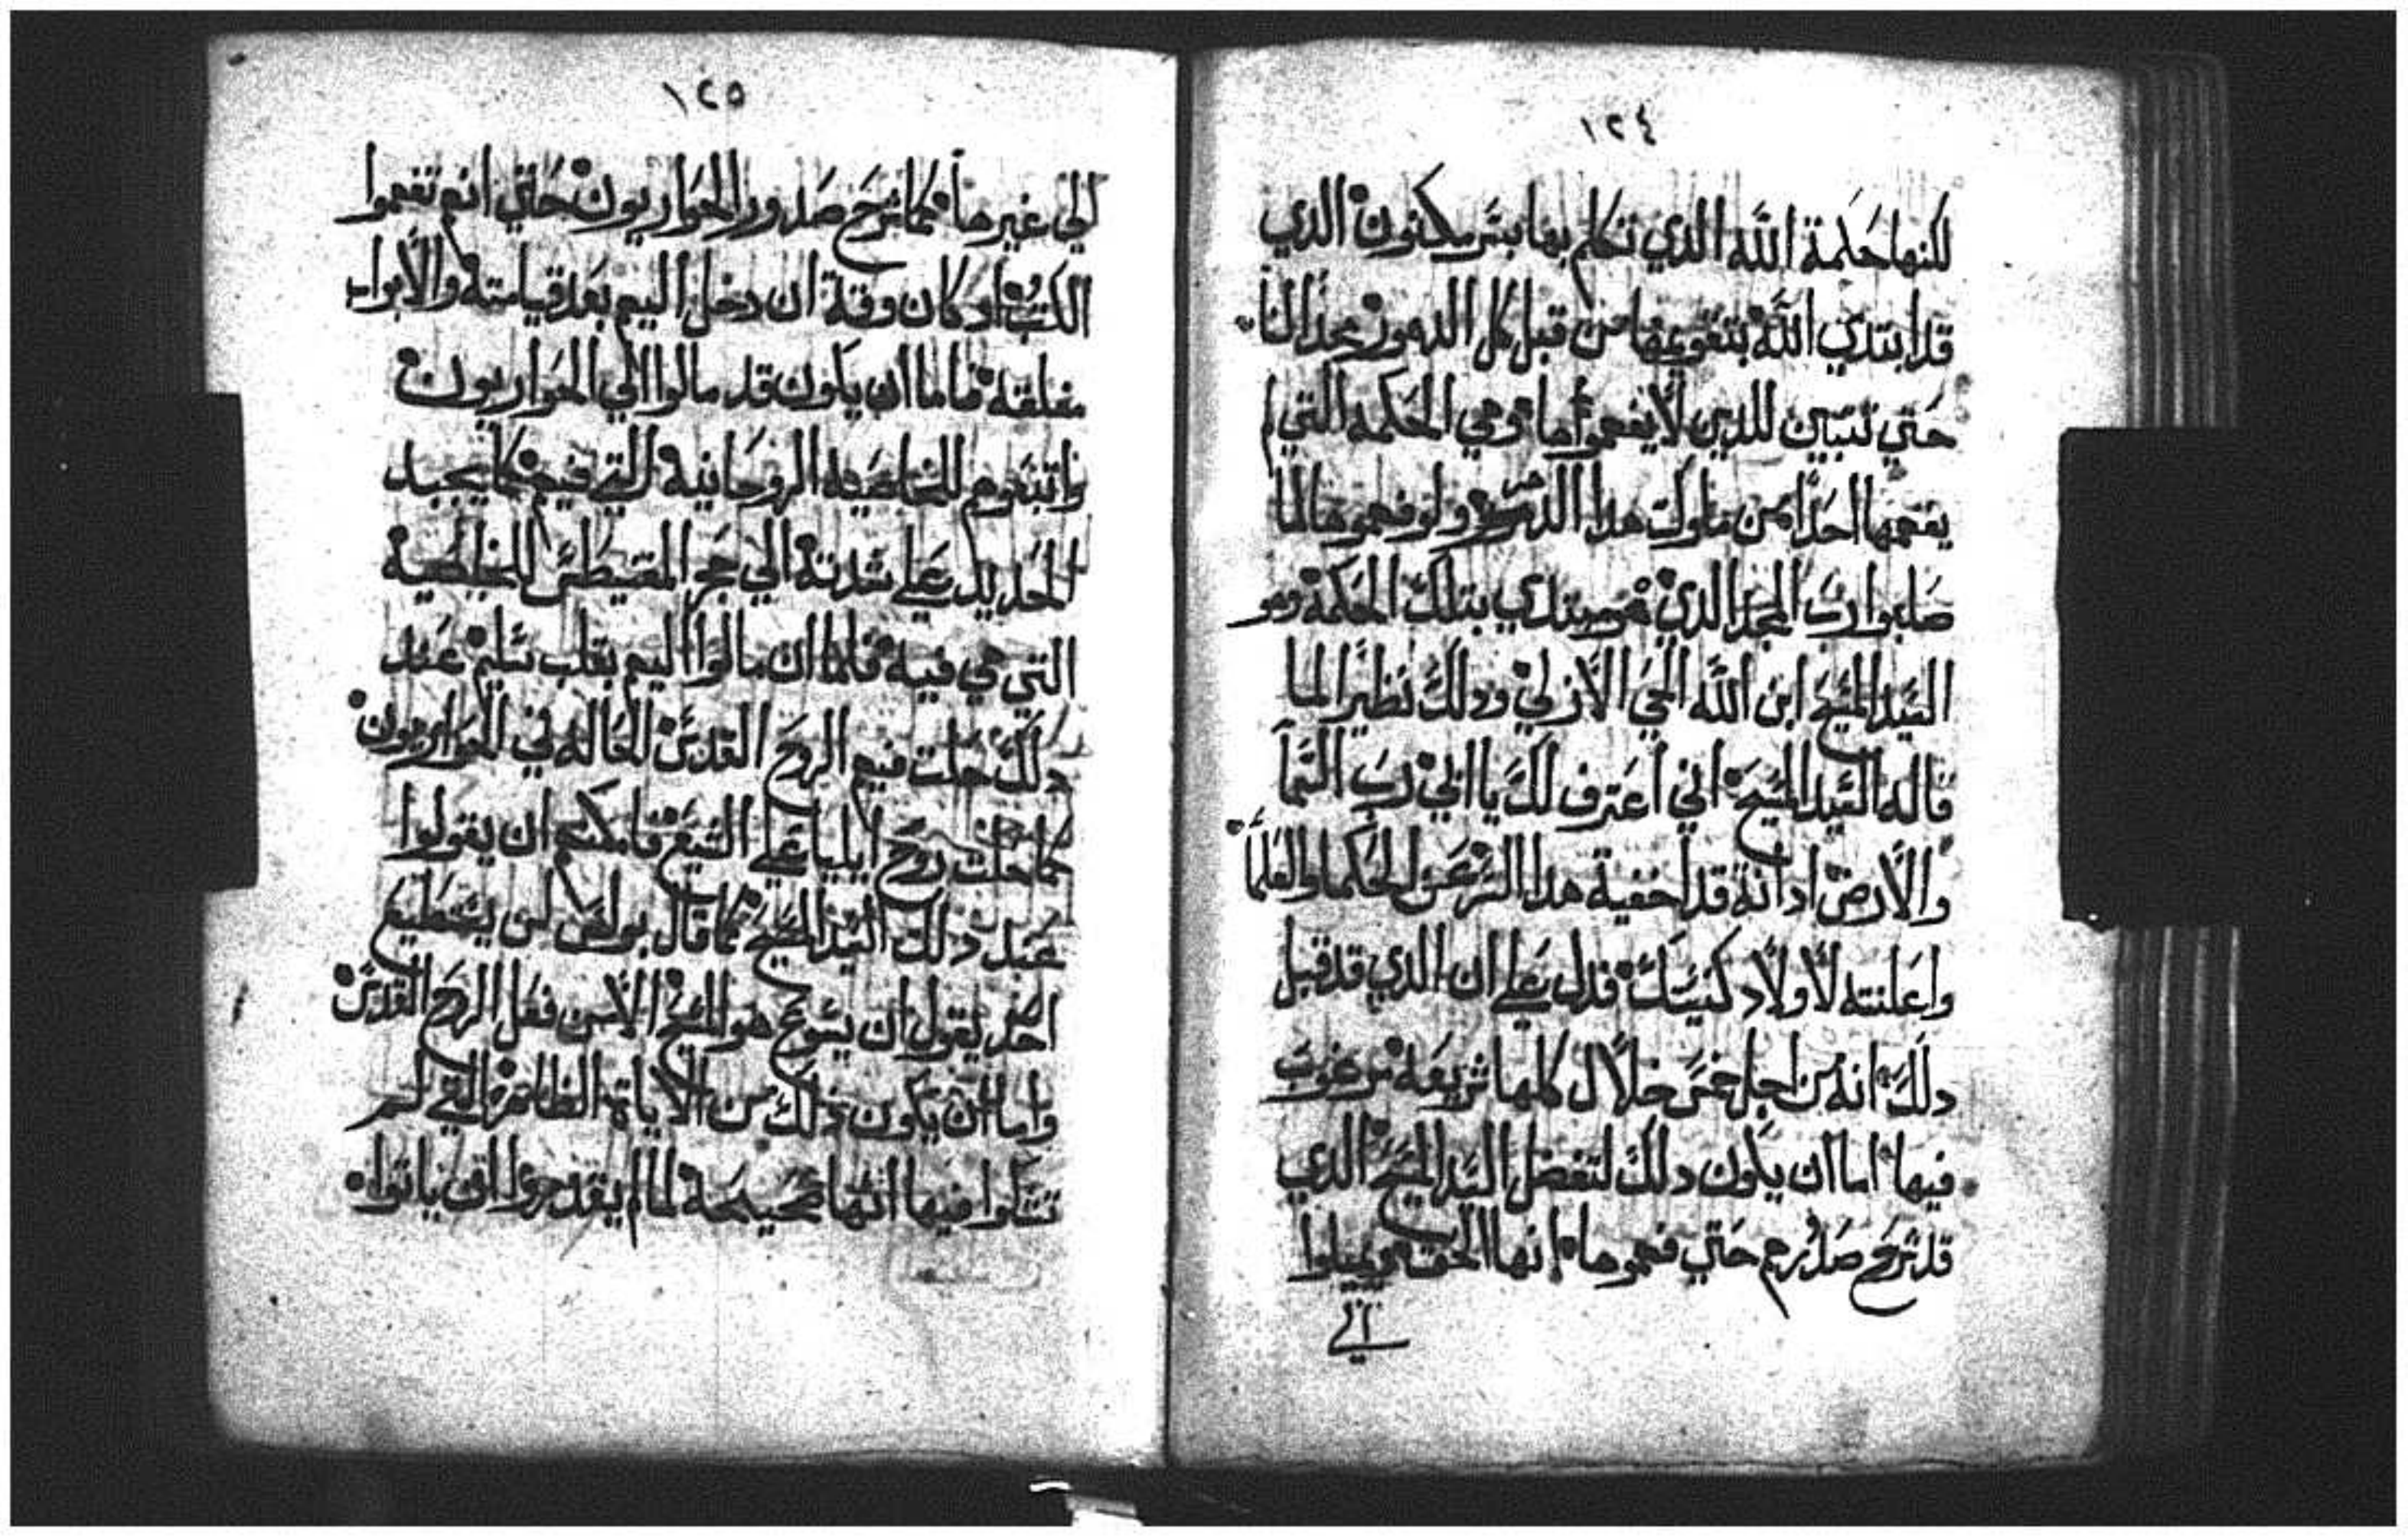 ١٢٤
لكنها حكمة الله الذي تكلم بها بسر مكنون الذي
قد ابتدي الله بتقويمها من قبل كل الدهور مجدا لنا
حتي تتبين للدين لا يفهموا ما هي الحكمه التي لم
يفهمها احدا من ملوك هدا الدهر ولو فهموها لما
صلبوا رب المجد الذي هو مبتدي بتلك الحكمة وهو
السيد المسيح ابن الله الحي الازلي ودلك نظيرا لما
قاله السيد المسيح اني اعترف لك يا ابي رب السما
والارض اد انه قد اخفية هدا السر عن الحكما والعلما
واعلنته لاولاد كنيستك فدل علي ان الدي قد قبل
دلك انه من اجل خمس خلال كلها شريفه مرغوب
فيها اما ان يكون دلك لتفضل السيد المسيح الدي
قد شرح صدرهم حتي فهموها انها الحق ويميلوا
الي
١٢٥
الي غيرها كما شرح صدور الحواريون حتي انهم تفهموا
الكتب اد كان وقة ان دخل اليهم بعد قيامته والابواب
مغلقه فاما ان يكون قد مالوا الي الحواريون
واتبعوهم للخاصيه الروحانية التي فيهم كما يجبد
الحديد علي شدته الي حجر المقنيطس للخاصية
التي هي فيه فلما ان مالوا اليهم بقلب سليم عند
دلك حلت فيهم الروح القدس الحاله في الحواريون
كما حلت روح ايليا علي اليسع فامكنهم ان يقولوا
عند دلك السيد المسيح كما قال بولص لن يستطيع
احد يقول ان يسوع هو المسيح الا من قبل الروح القدس
واما ان يكون دلك من الاياة الظاهرة التي لم
تشكوا فيها انها صحيحة لما لم يقدروا ان ياتوا